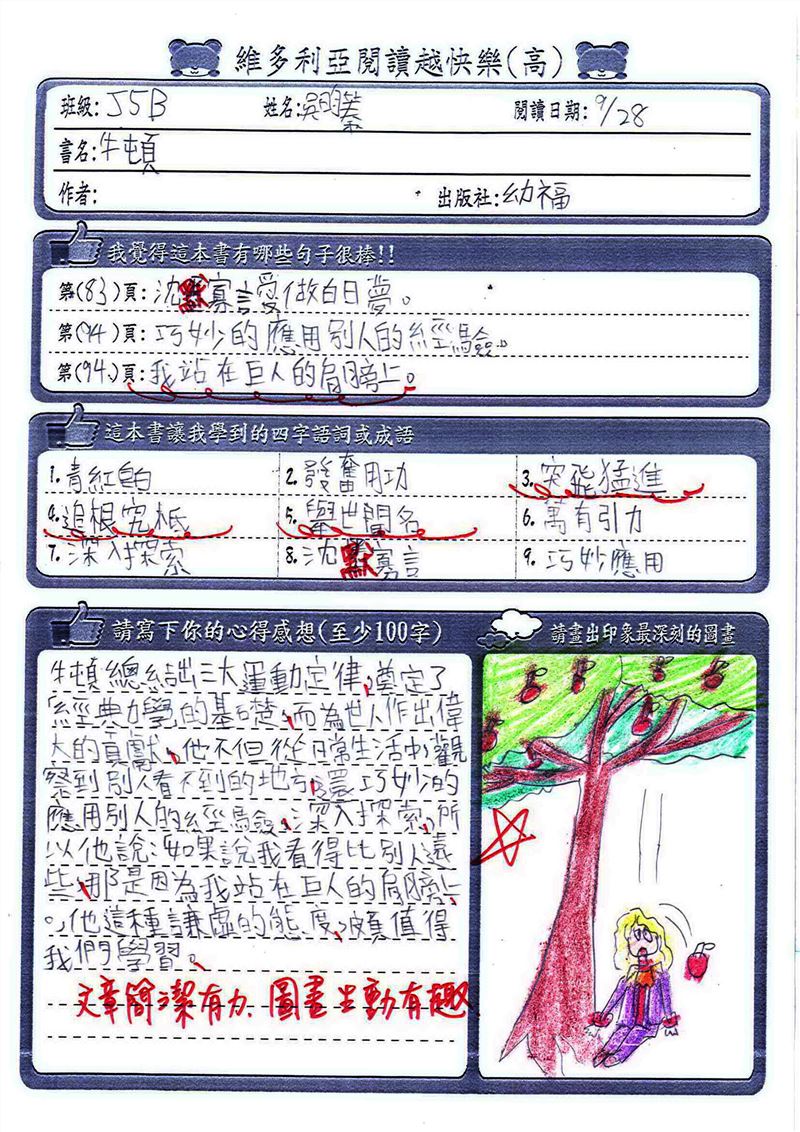 維多利亞閱讀越快樂(高)
班級: J5B 姓名: 吳明蓁 閱讀日期: 9/28
書名: 牛頓
作者: 出版社: 幼福
我覺得這本書有哪些句子很棒!!
第(83)頁: 沈默寡言愛做白日夢。
第(94)頁: 巧妙的應用別人的經驗。
第(94)頁: 我站在巨人的肩膀上。
這本書讓我學到的四字語詞或成語
1. 青紅皂白 2. 發奮用功 3. 突飛猛進
4. 追根究柢 5. 舉世聞名 6. 萬有引力
7. 深入探索 8. 沈默寡言 9. 巧妙應用
請寫下你的心得感想(至少100字)
請畫出印象最深刻的圖畫
牛頓總結出三大運動定律,奠定了
經典力學的基礎,而為世人作出偉
大的貢獻。他不但從日常生活中觀
察到別人看不到的地方,還巧妙的
應用別人的經驗,深入探索,所
以他說:如果說我看得比別人遠
些,那是因為我站在巨人的肩膀上
。他這種謙虛的態度,很值得
我們學習。
文章簡潔有力、圖畫生動有趣